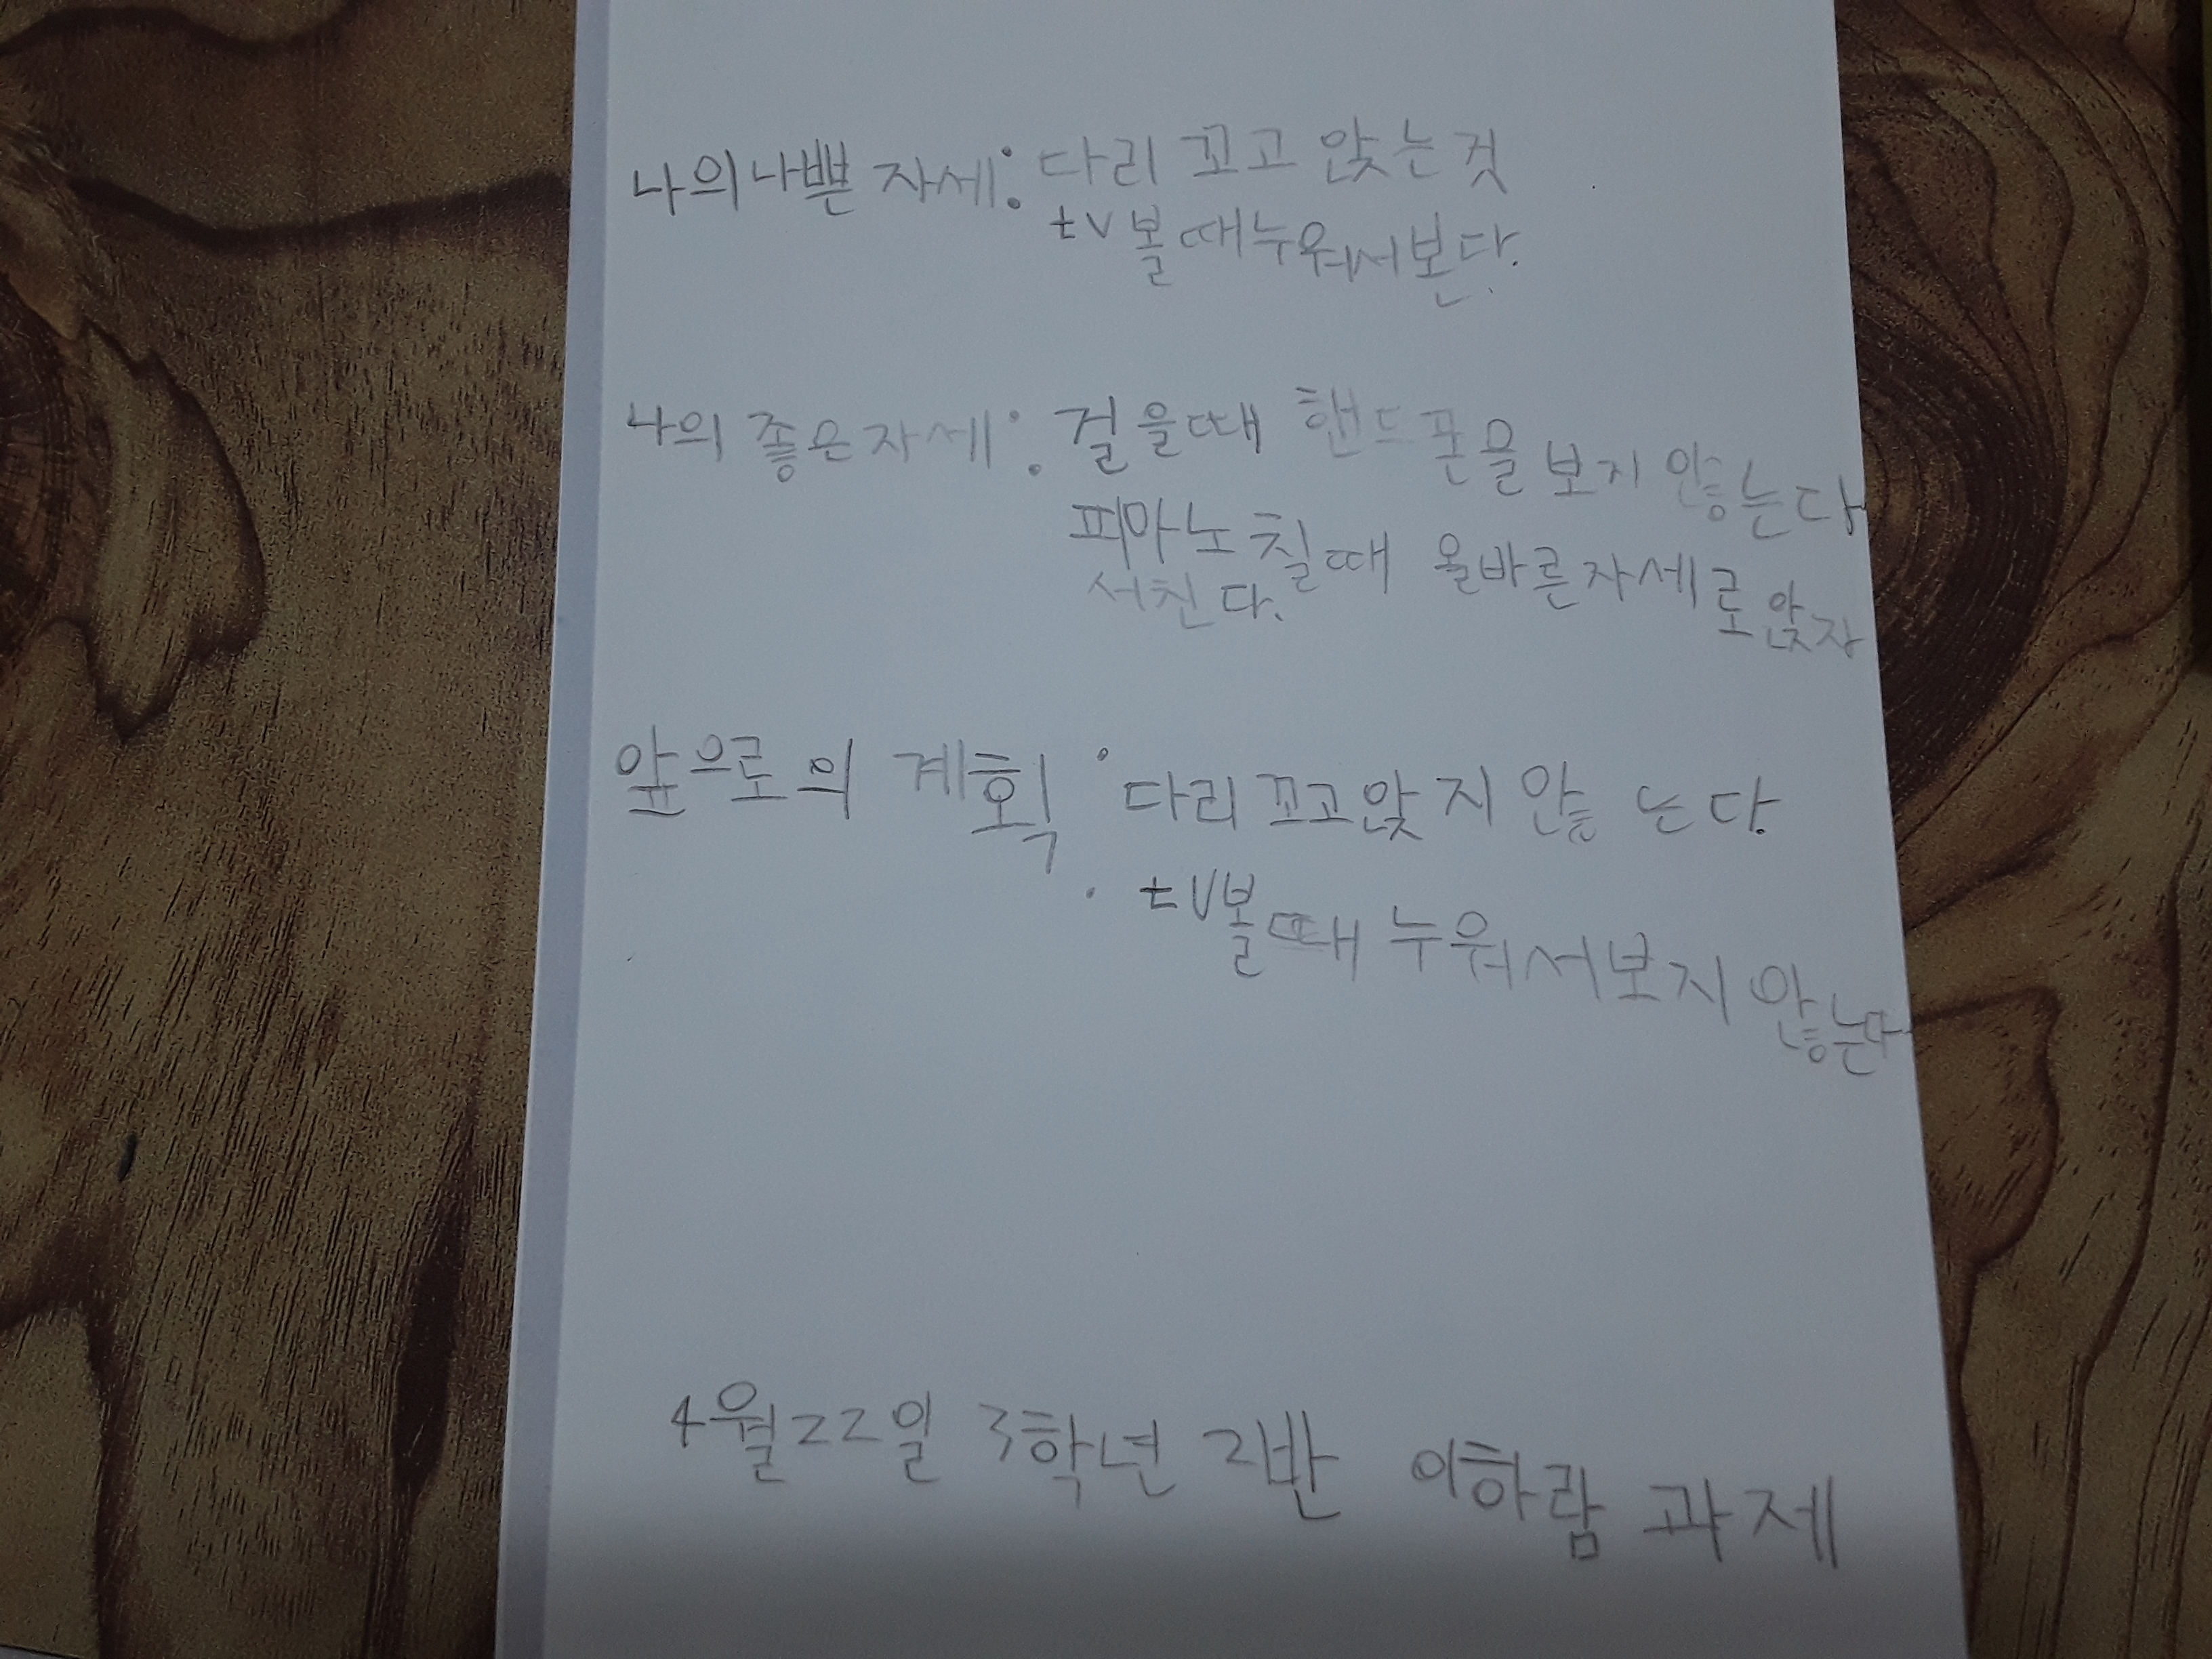 나의나쁜 자세: 다리 꼬고 앉는것
tv볼때누워서본다.
나의 좋은자세: 걸을때 핸드폰을 보지 않는다
피아노 칠때 올바른자세로앉자
서친다.
앞으로의 계획: 다리꼬고앉지 않는다.
tv볼때 누워서보지 않는다
4월22일 3학년 2반 이하람 과제